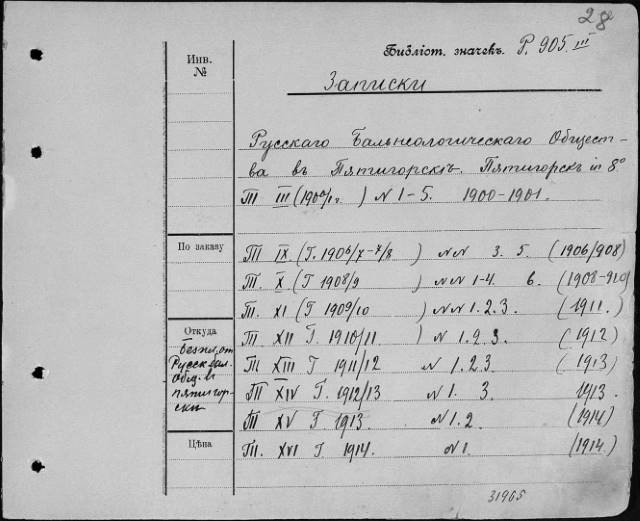 28
Инв.
№
Библіот. значекъ. Р. 905. III
Записки
Русскаго Бальнеологическаго Общест-
ва въ Пятигорскѣ. Пятигорскъ in 8º
Т. III (1900/1 г.) N 1-5. 1900-1901.
По заказу
Т. IX (Г. 1906/7-7/8) NN 3. 5. (1906/908)
Т. X (Г 1908/9) NN 1-4. 6. (1908-910)
Т. XI (Г 1909/10) NN 1. 2. 3. (1911.)
Откуда
Безпл. от
Русск. Бал.
Общ. в
Пятигор-
ски
Т. XII Г. 1910/11.) N 1. 2. 3. (1912)
Т. XIII Г 1911/12 N 1. 2. 3. (1913)
Т. XIV Г. 1912/13 N 1. 3. 1913.
Т. XV Г. 1913. N 1. 2 (1914)
Цѣна
Т. XVI Г 1914. N 1. (1914.)
31965